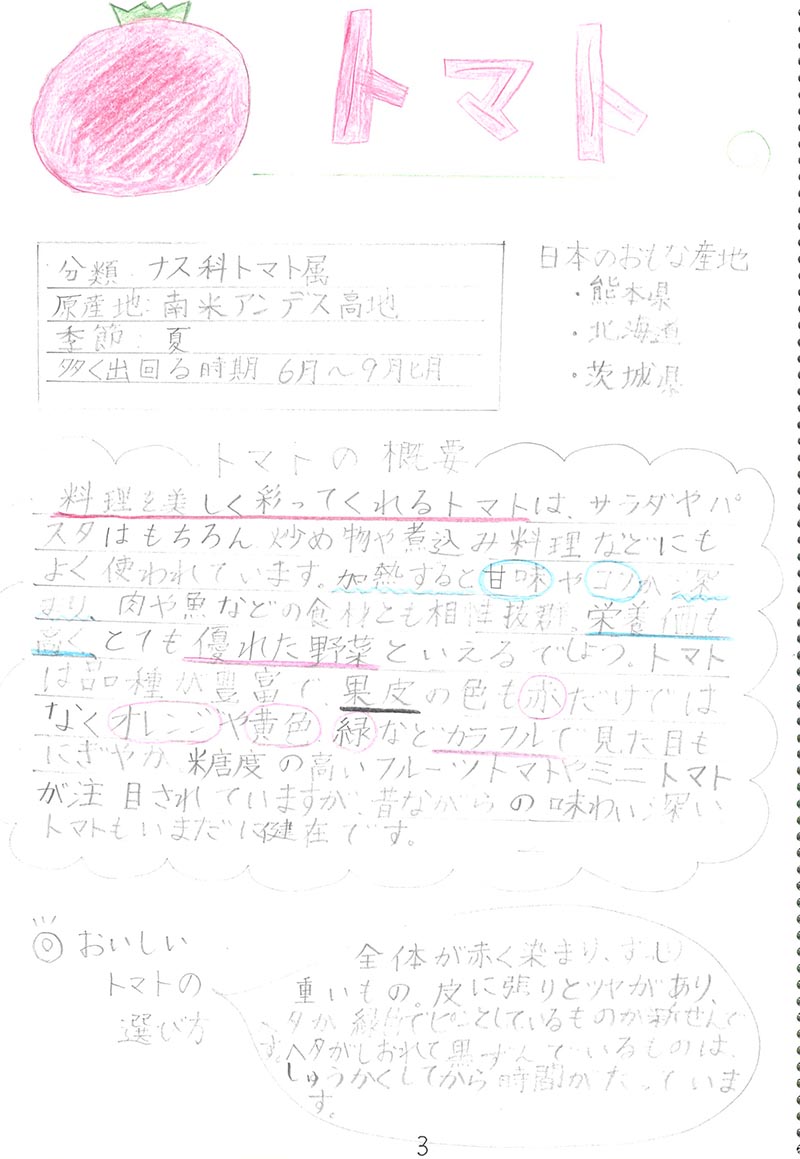 トマト
分類:ナス科トマト属
原産地:南米アンデス高地
季節:夏
多く出回る時期 6月〜9月ヒ月
日本のおもな産地
・熊本県
・北海道
・茨城県
トマトの概要
料理を美しく彩ってくれるトマトは、サラダやパ
スタはもちろん炒め物や煮込み料理などにも
よく使われています。加熱すると甘味やコクが深
まり、肉や魚などの食材とも相性抜群。栄養価も
高くとても優れた野菜といえるでしょう。トマト
は品種が豊富で、果皮の色も赤だけでは
なくオレンジや黄色、緑などカラフルで見た目も
にぎやか。糖度の高いフルーツトマトやミニトマト
が注目されていますが、昔ながらの味わい深い
トマトもいまだに健在です。
◎おいしい
トマトの
選び方
全体が赤く染まり、ずしり
重いもの。皮に張りとツヤがあり、
ヘタが緑色でピンとしているものが新せんで
す。ヘタがしおれて黒ずんでいるものは、
しゅうかくしてから時間がたっていま
す。
3